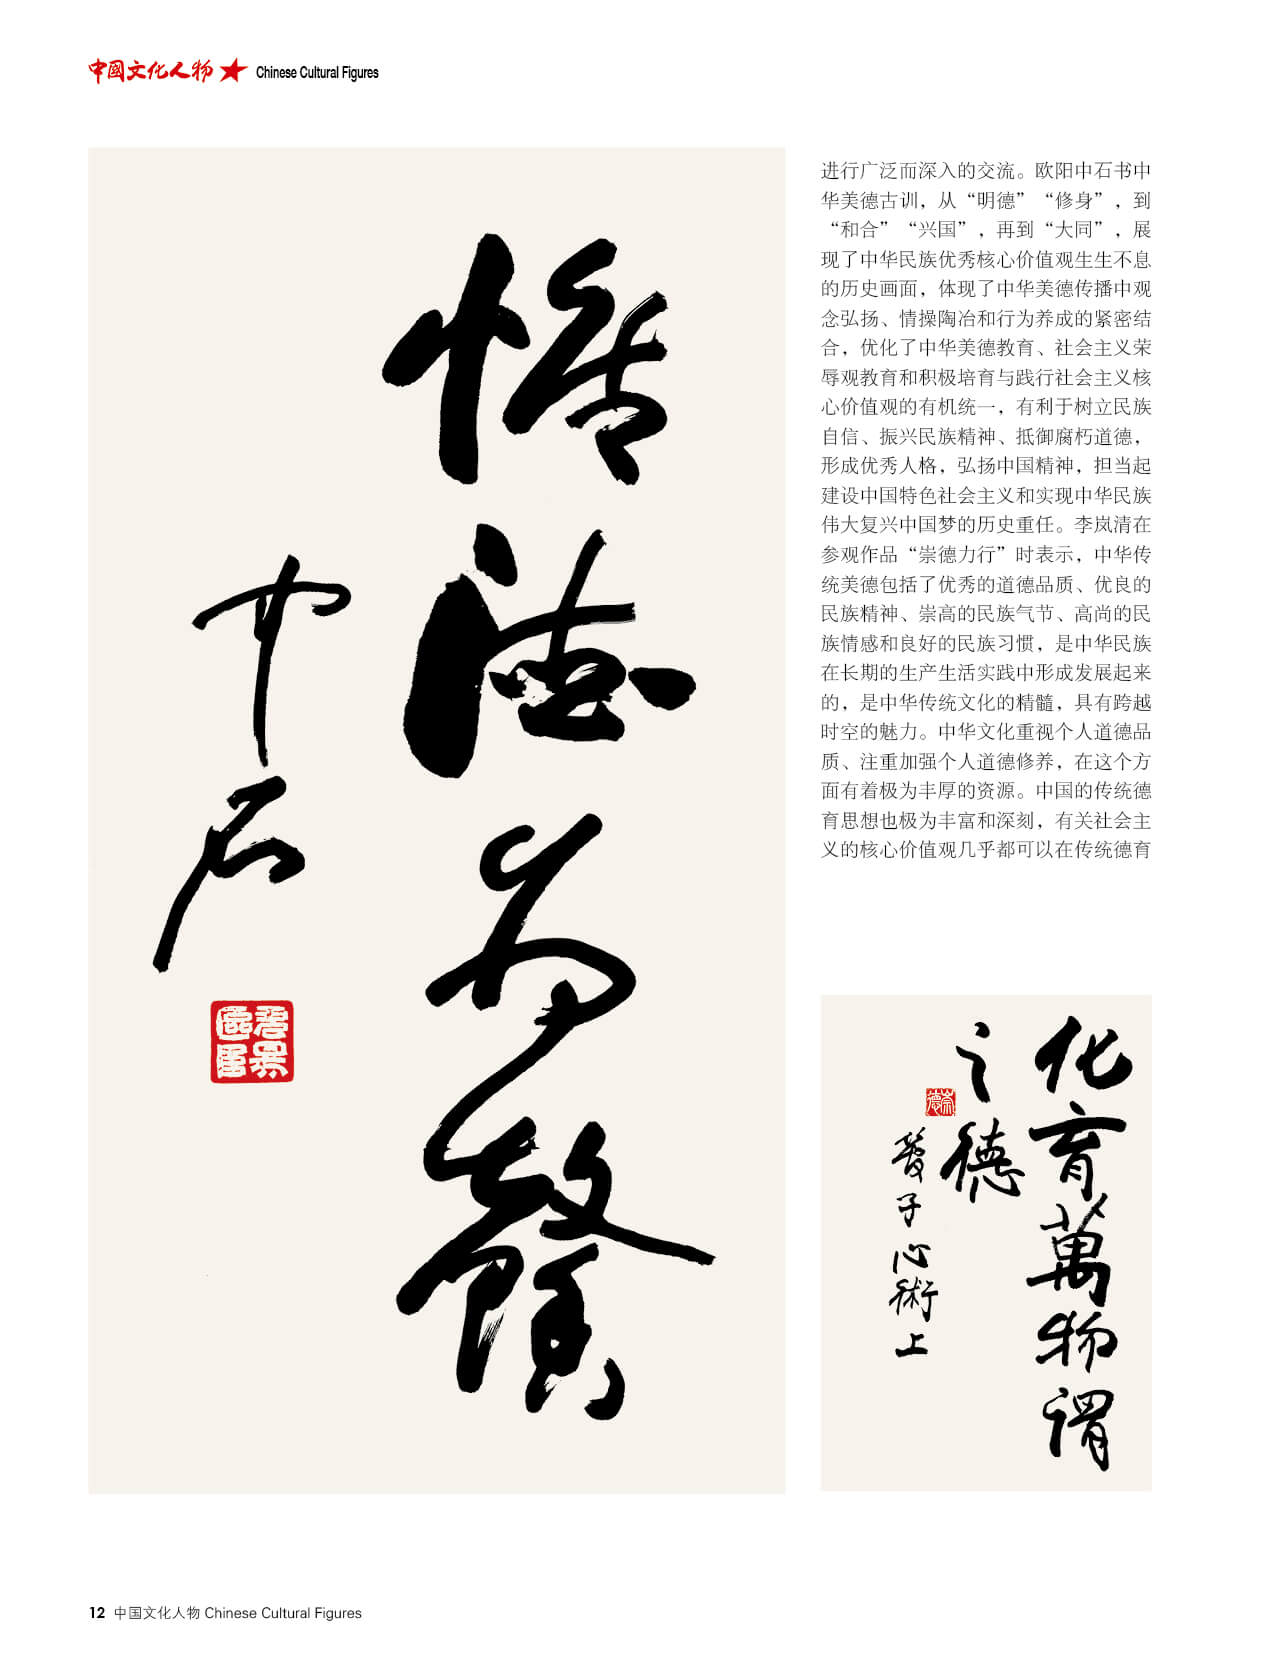 中國文化人物 Chinese Cultural Figures
惟德为馨
中石
进行广泛而深入的交流。欧阳中石书中
华美德古训，从“明德”“修身”，到
“和合”“兴国”，再到“大同”，展
现了中华民族优秀核心价值观生生不息
的历史画面，体现了中华美德传播中观
念弘扬、情操陶冶和行为养成的紧密结
合，优化了中华美德教育、社会主义荣
辱观教育和积极培育与践行社会主义核
心价值观的有机统一，有利于树立民族
自信、振兴民族精神、抵御腐朽道德，
形成优秀人格，弘扬中国精神，担当起
建设中国特色社会主义和实现中华民族
伟大复兴中国梦的历史重任。李岚清在
参观作品“崇德力行”时表示，中华传
统美德包括了优秀的道德品质、优良的
民族精神、崇高的民族气节、高尚的民
族情感和良好的民族习惯，是中华民族
在长期的生产生活实践中形成发展起来
的，是中华传统文化的精髓，具有跨越
时空的魅力。中华文化重视个人道德品
质、注重加强个人道德修养，在这个方
面有着极为丰厚的资源。中国的传统德
育思想也极为丰富和深刻，有关社会主
义的核心价值观几乎都可以在传统德育
化育萬物謂
之德
崇德
管子心術上
12 中国文化人物 Chinese Cultural Figures